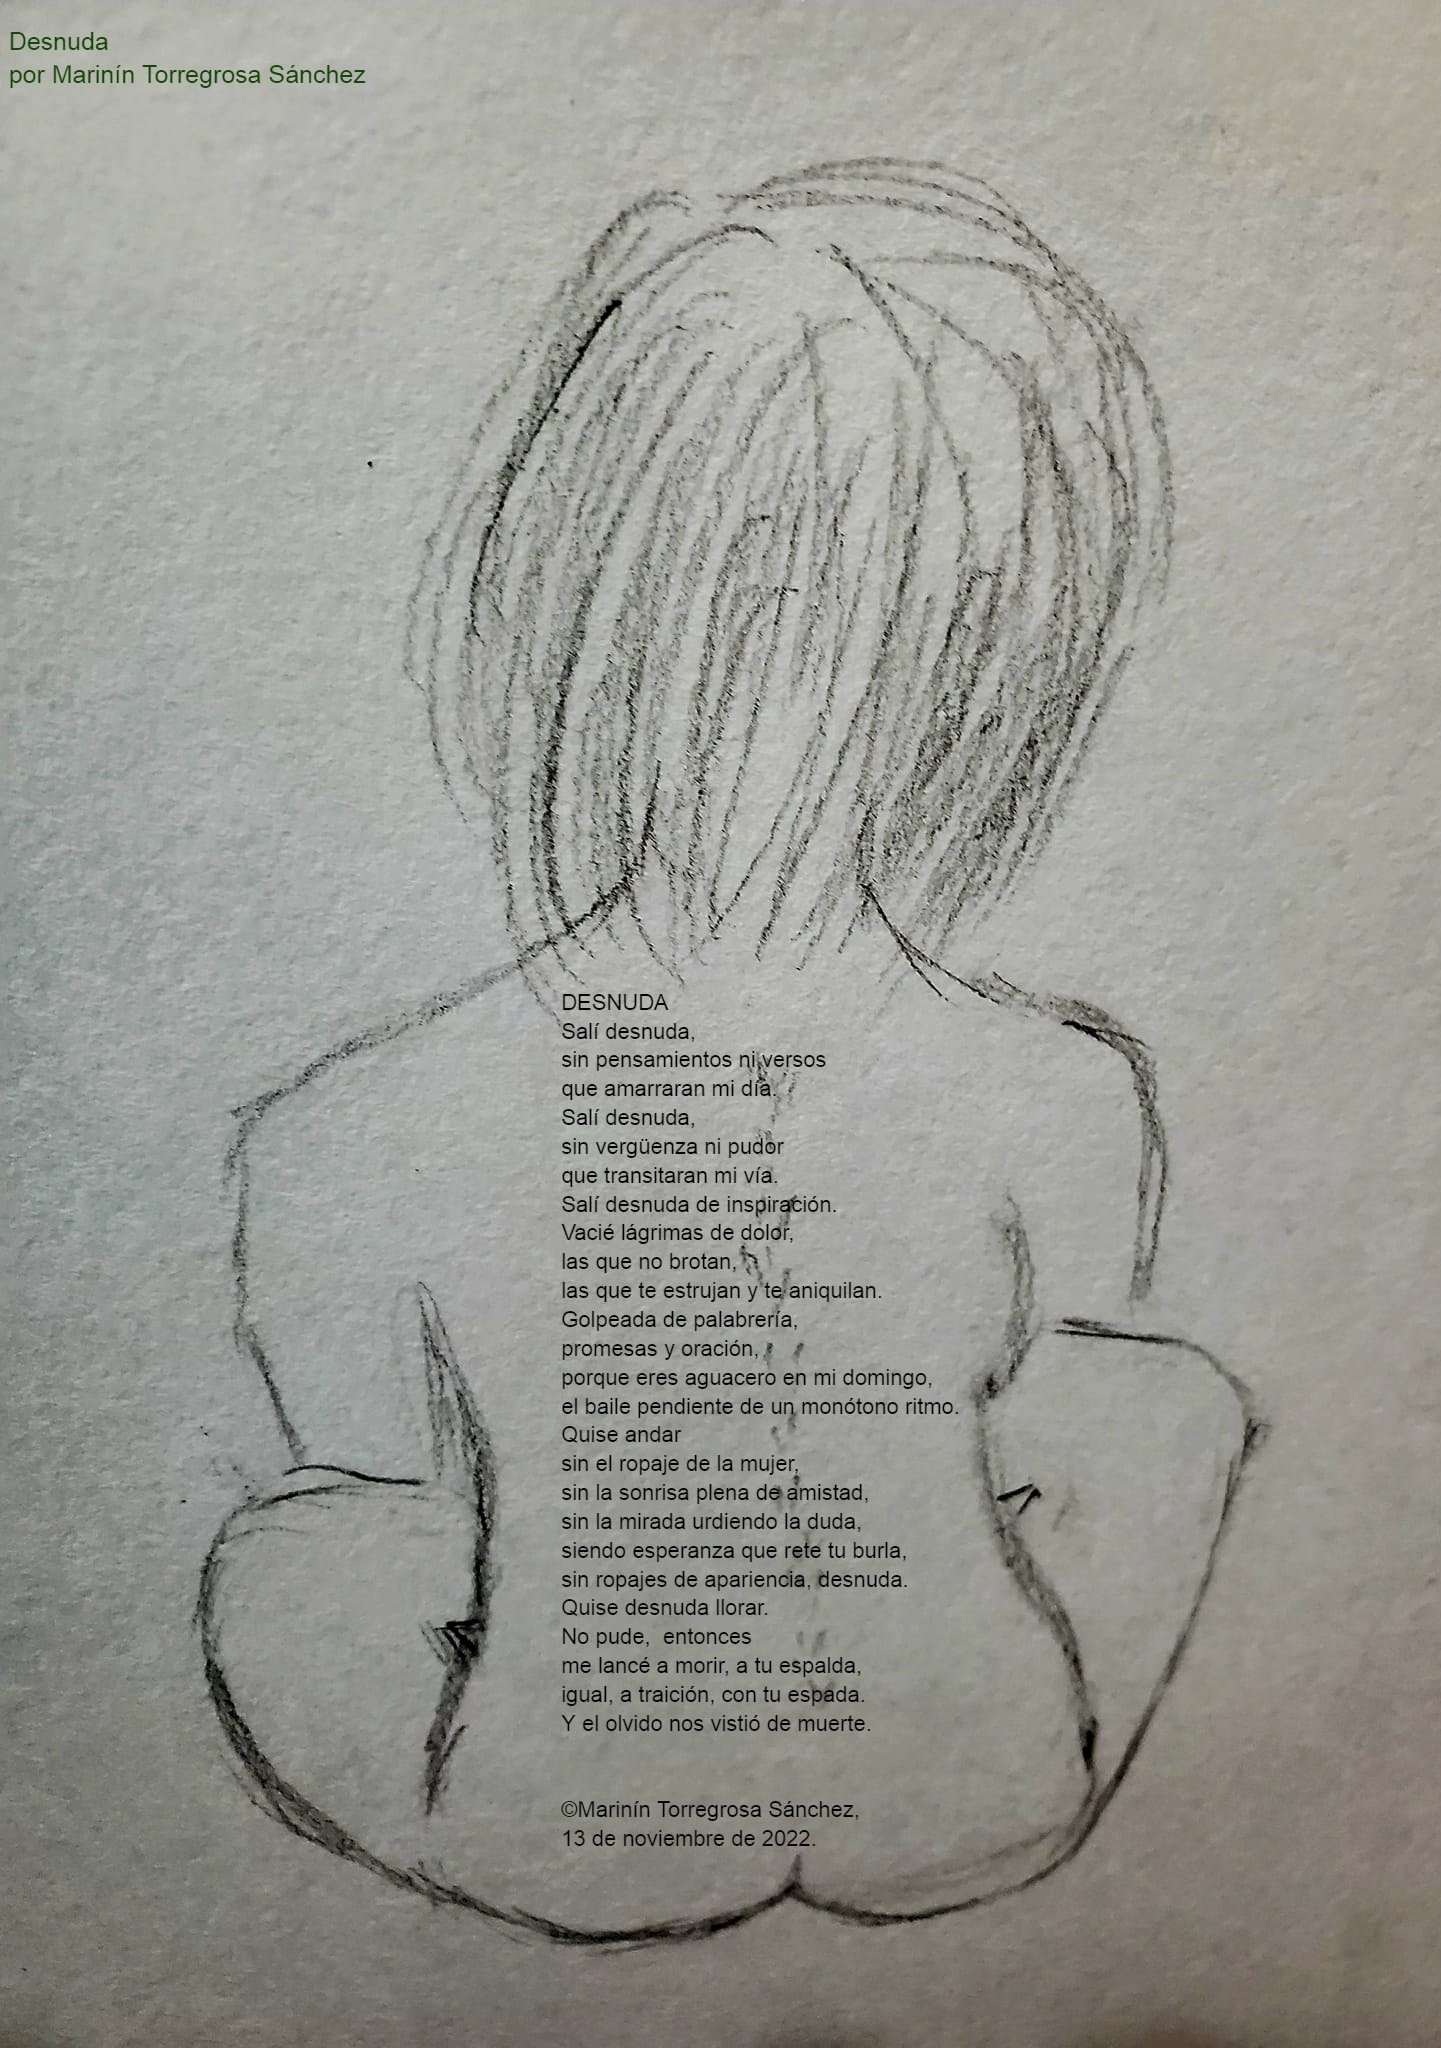 Desnuda
por Marinín Torregrosa Sánchez
DESNUDA
Salí desnuda,
sin pensamientos ni versos
que amarraran mi día.
Salí desnuda,
sin vergüenza ni pudor
que transitaran mi vía.
Salí desnuda de inspiración.
Vacié lágrimas de dolor,
las que no brotan,
las que te estrujan y te aniquilan.
Golpeada de palabrería,
promesas y oración,
porque eres aguacero en mi domingo,
el baile pendiente de un monótono ritmo.
Quise andar
sin el ropaje de la mujer,
sin la sonrisa plena de amistad,
sin la mirada urdiendo la duda,
siendo esperanza que rete tu burla,
sin ropajes de apariencia, desnuda.
Quise desnuda llorar.
No pude,  entonces
me lancé a morir, a tu espalda,
igual, a traición, con tu espada.
Y el olvido nos vistió de muerte.
©Marinín Torregrosa Sánchez,
13 de noviembre de 2022.